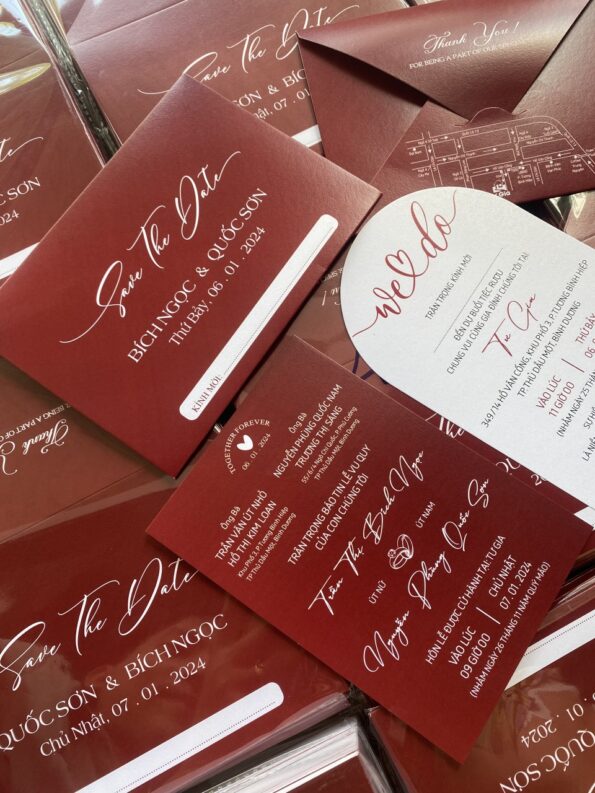 Save The Date
BÍCH NGỌC & QUỐC SƠN
Thứ Bảy, 06 . 01 . 2024
KÍNH MỜI:
Save The Date
& QUỐC SƠN
07 . 01 . 2024
Thank You !
FOR BEING A PART OF OUR
Save The Date
2024
we do
TRÂN TRỌNG KÍNH MỜI
ĐẾN DỰ BUỔI TIỆC RƯỢU
CHUNG VUI CÙNG GIA ĐÌNH CHÚNG TÔI TẠI
Tư Gia
349/14 HỒ VĂN CỐNG, KHU PHỐ 3, P.TƯƠNG BÌNH HIỆP
TP.THỦ DẦU MỘT, BÌNH DƯƠNG
VÀO LÚC
11 GIỜ 00
THỨ BẢY
(NHẰM NGÀY 25 THÁNG
TOGETHER FOREVER
06 . 01 . 2024
Ông Bà
TRẦN VĂN ÚT NHỎ
HỒ THỊ KIM LOAN
Khu Phố 3, P.Tương Bình Hiệp
TP.Thủ Dầu Một, Bình Dương
Ông Bà
NGUYỄN PHÙNG QUỐC NAM
TRƯƠNG THỊ SÁNG
TP.Thủ Dầu Một, Bình Dương
TRÂN TRỌNG BÁO TIN LỄ VU QUY
CỦA CON CHÚNG TÔI
Trần Thị Bích Ngọc
ÚT NỮ
ÚT NAM
Nguyễn Phùng Quốc Sơn
HÔN LỄ ĐƯỢC CỬ HÀNH TẠI TƯ GIA
VÀO LÚC
09 GIỜ 00
CHỦ NHẬT
07. 01. 2024
(NHẰM NGÀY 26 THÁNG 11 NĂM QUÝ MÃO)
BEING A PART OF
Thank
Save The Date
QUỐC SƠN & BÍCH NGỌC
Chủ Nhật, 07 . 01 . 2024
QUỐC SƠN
01 . 2024